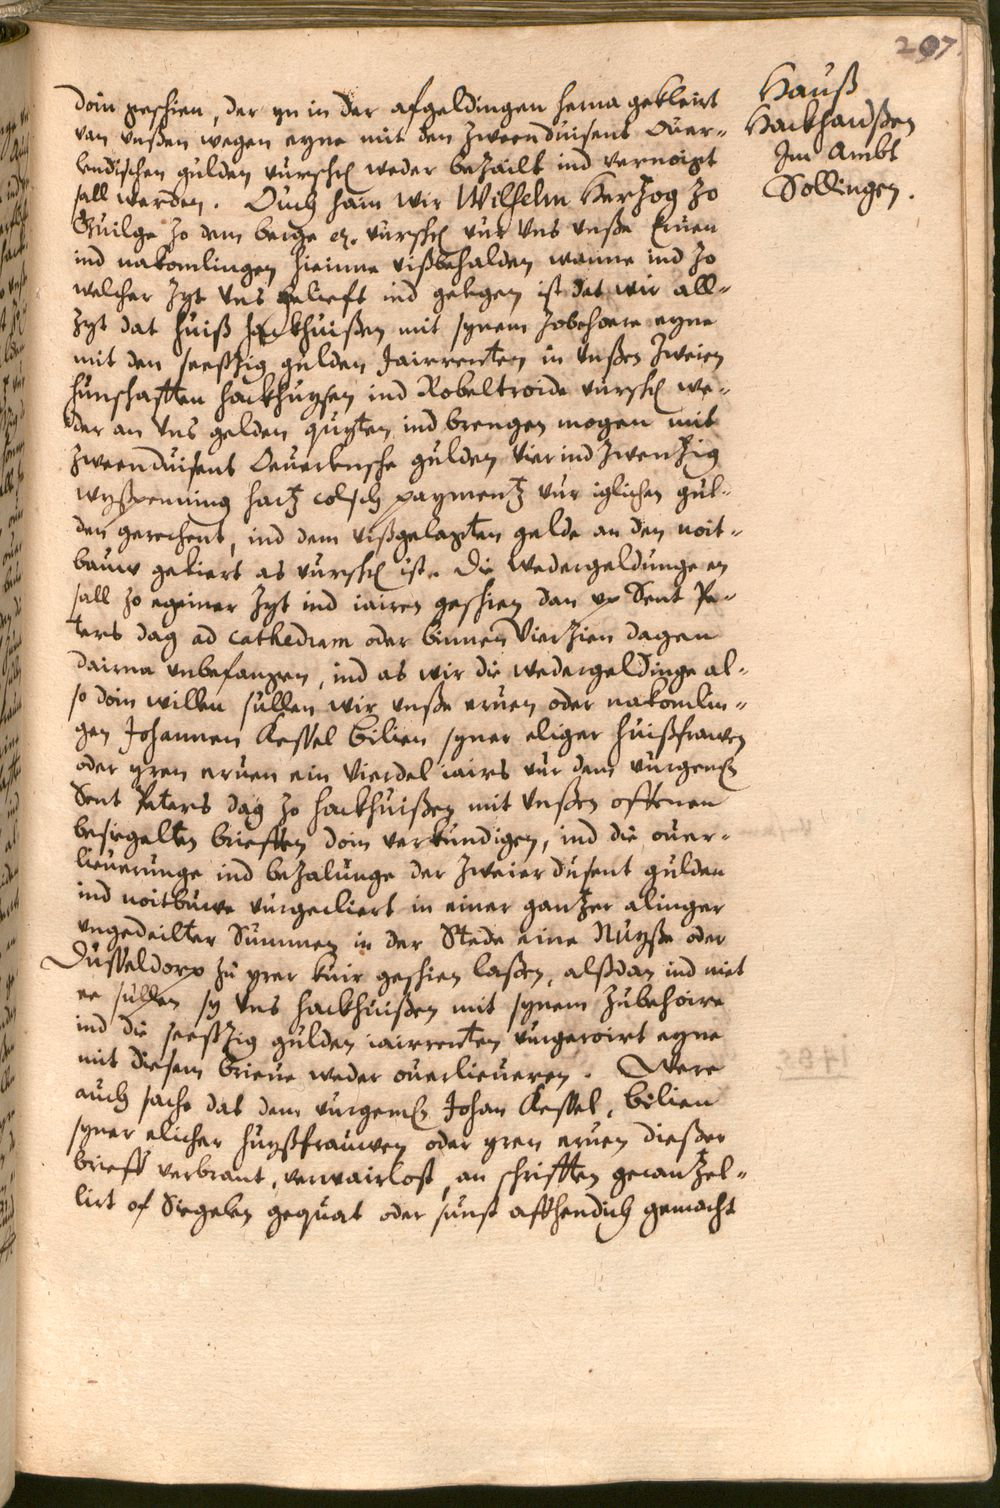 297.
Hauß
Hackhaußen
Im Ambt
Sollingen.
doin geschien, der yn in der afgeldingen herna gekleirt
van vnßen wegen eyne mit den zweenduisent Ouer-
lendischen gulden vurschr weder bezailt ind vernoigt
sall werden. Ouch hain wir Wilhelm Hertzog zo
Guilge zo dem berge etc. vurschr vur vns vnße eruen
ind nakomlingen hierinne vißbehalden wanne ind zo
welcher zyt vns gelieft ind gelegen ist dat wir all-
zyt dat huiß Hackhuißen mit synem zobehoere eyne
mit den seeßtzig gulden Jairrenten in vnßen zweien
hunschafften Hackhuysen ind Robeltroide vurschr we-
der an vns gelden quyten ind brengen mogen mit
zweenduisent Oeuerlensche gulden vier ind zwentzig
wyßpenning hartz colsch paymentz vur iglichen gul-
den gerechent, ind dem vißgelagten gelde an den noit-
bauw gekiert as vurschr ist. Die wedergeldunge en
sall zo egeiner zyt ind iairen geschien dan vp Sent Pe-
ters dag ad cathedram oder binnen vierzien dagen
dairna vnbefangen, ind as wir die wedergeldinge al-
so doin willen sullen wir vnße eruen oder nakomlin-
gen Johannen Kessel bilien syner eliger huißfrawen
oder yren eruen ein vierdel iairs vur dem vurgemr
Sent Peters dag zo Hackhuißen mit vnßen offenen
besiegelten brieffen doin verkundigen, ind die ouer-
lieuerunge ind bezalunge der zweier dusent gulden
ind noitbuwe vurgecliert in einer gantzer alinger
vngedeilter Summen in der Stede eine Nuyße oder
Dusseldorp zu yrer kuir geschien laßen, alßdan ind niet
ee sullen sy vns Hackhuißen mit synem zubehoire
ind die seeßtzig gulden iairrenten vurgeroirt eyne
mit diesem brieue weder ouerlieueren. Were
auch sache dat dem vurgemr Johan Kessel, bilien
syner elicher huyßfrauwen oder yren eruen dießer
brieff verbrant, verwairlost, an schrifften gecantzel-
lirt of Siegelen gequat oder sunst affhendich gemacht